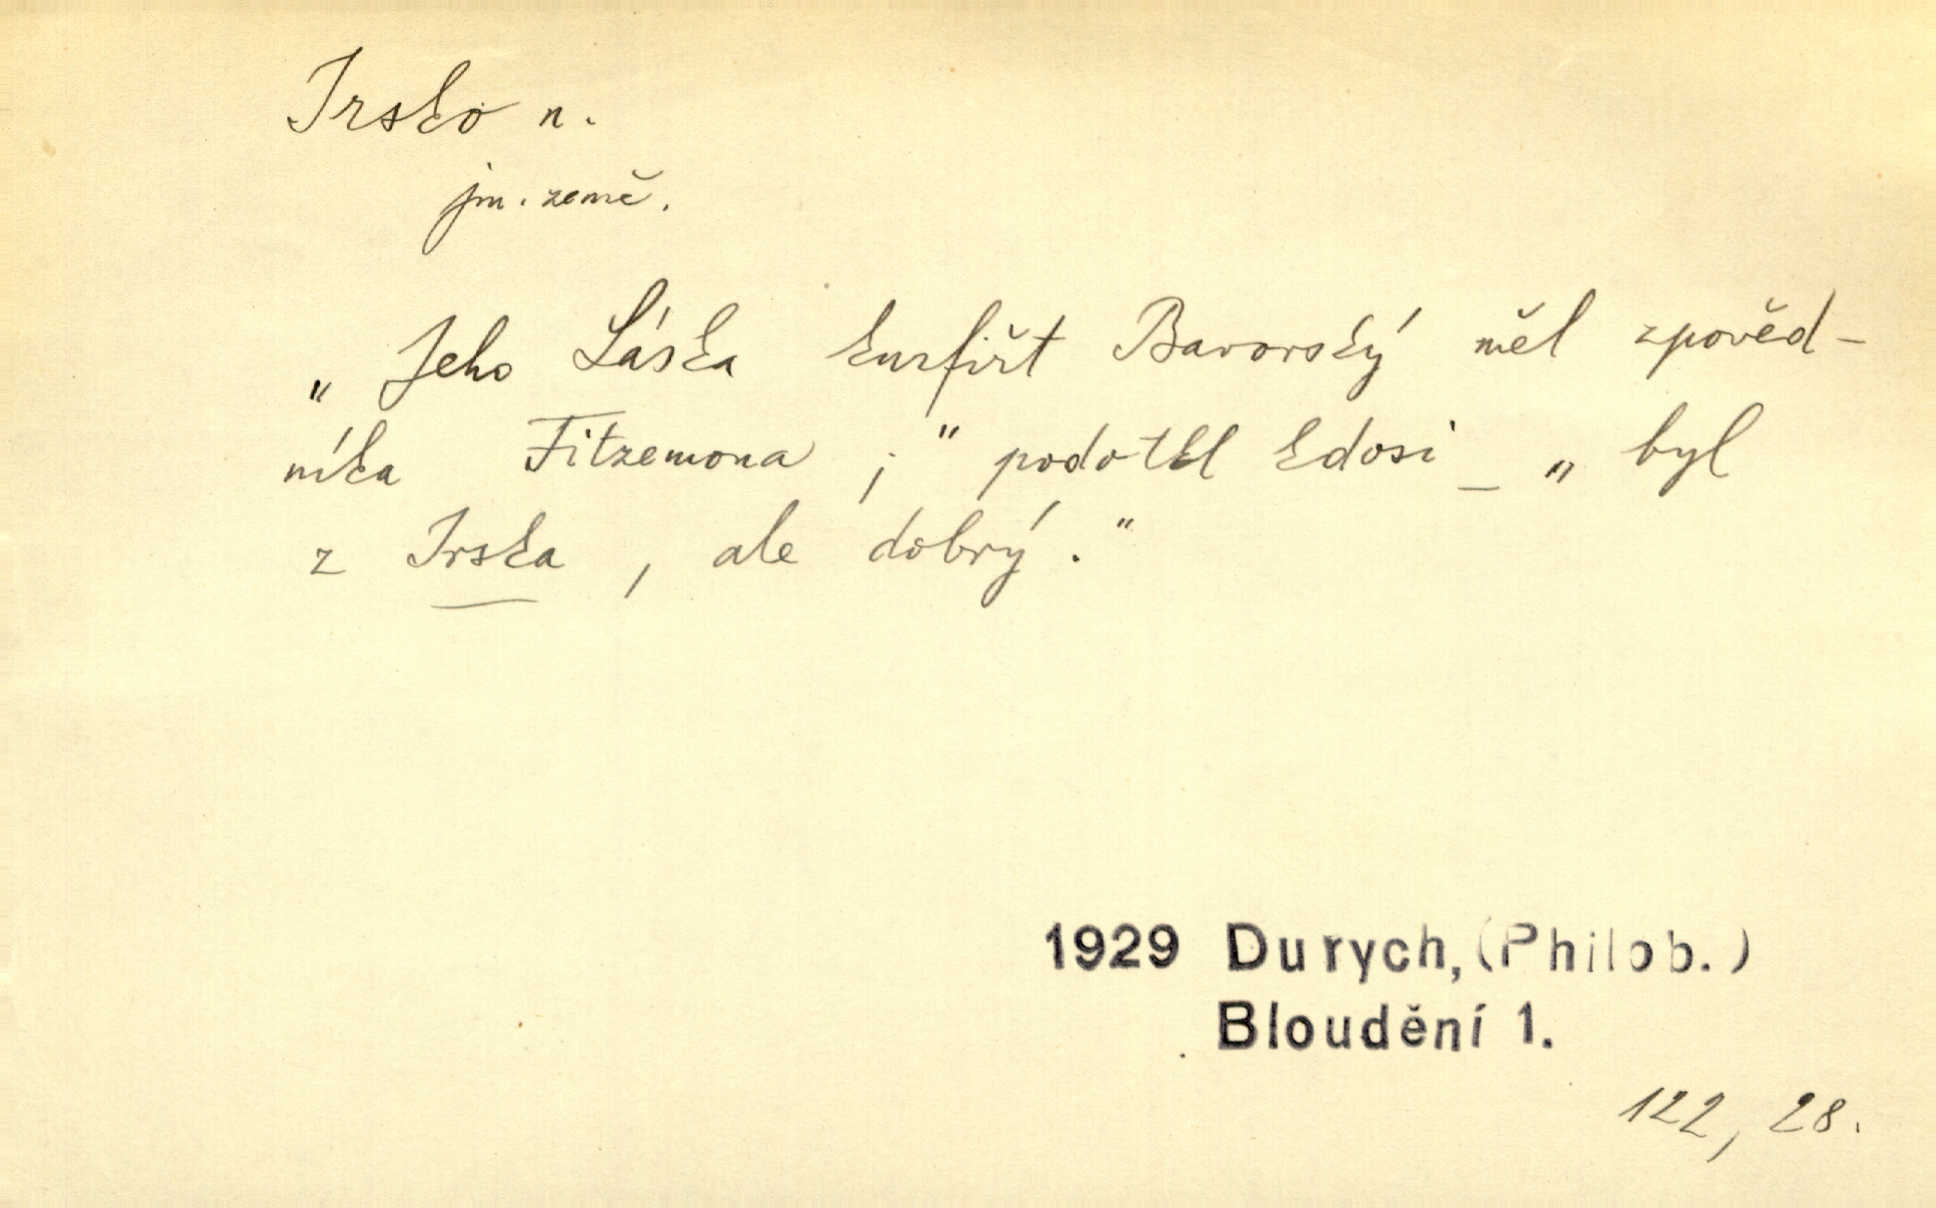 Irsko n.
jm. země.
„Jeho Láska kurfiřt Bavorský měl zpověd-
níka Fitzemona ;" podotkl kdosi _ „byl
z Irska, ale dobrý."
1929 Durych, (Philob.)
Bloudění 1.
122, 28.